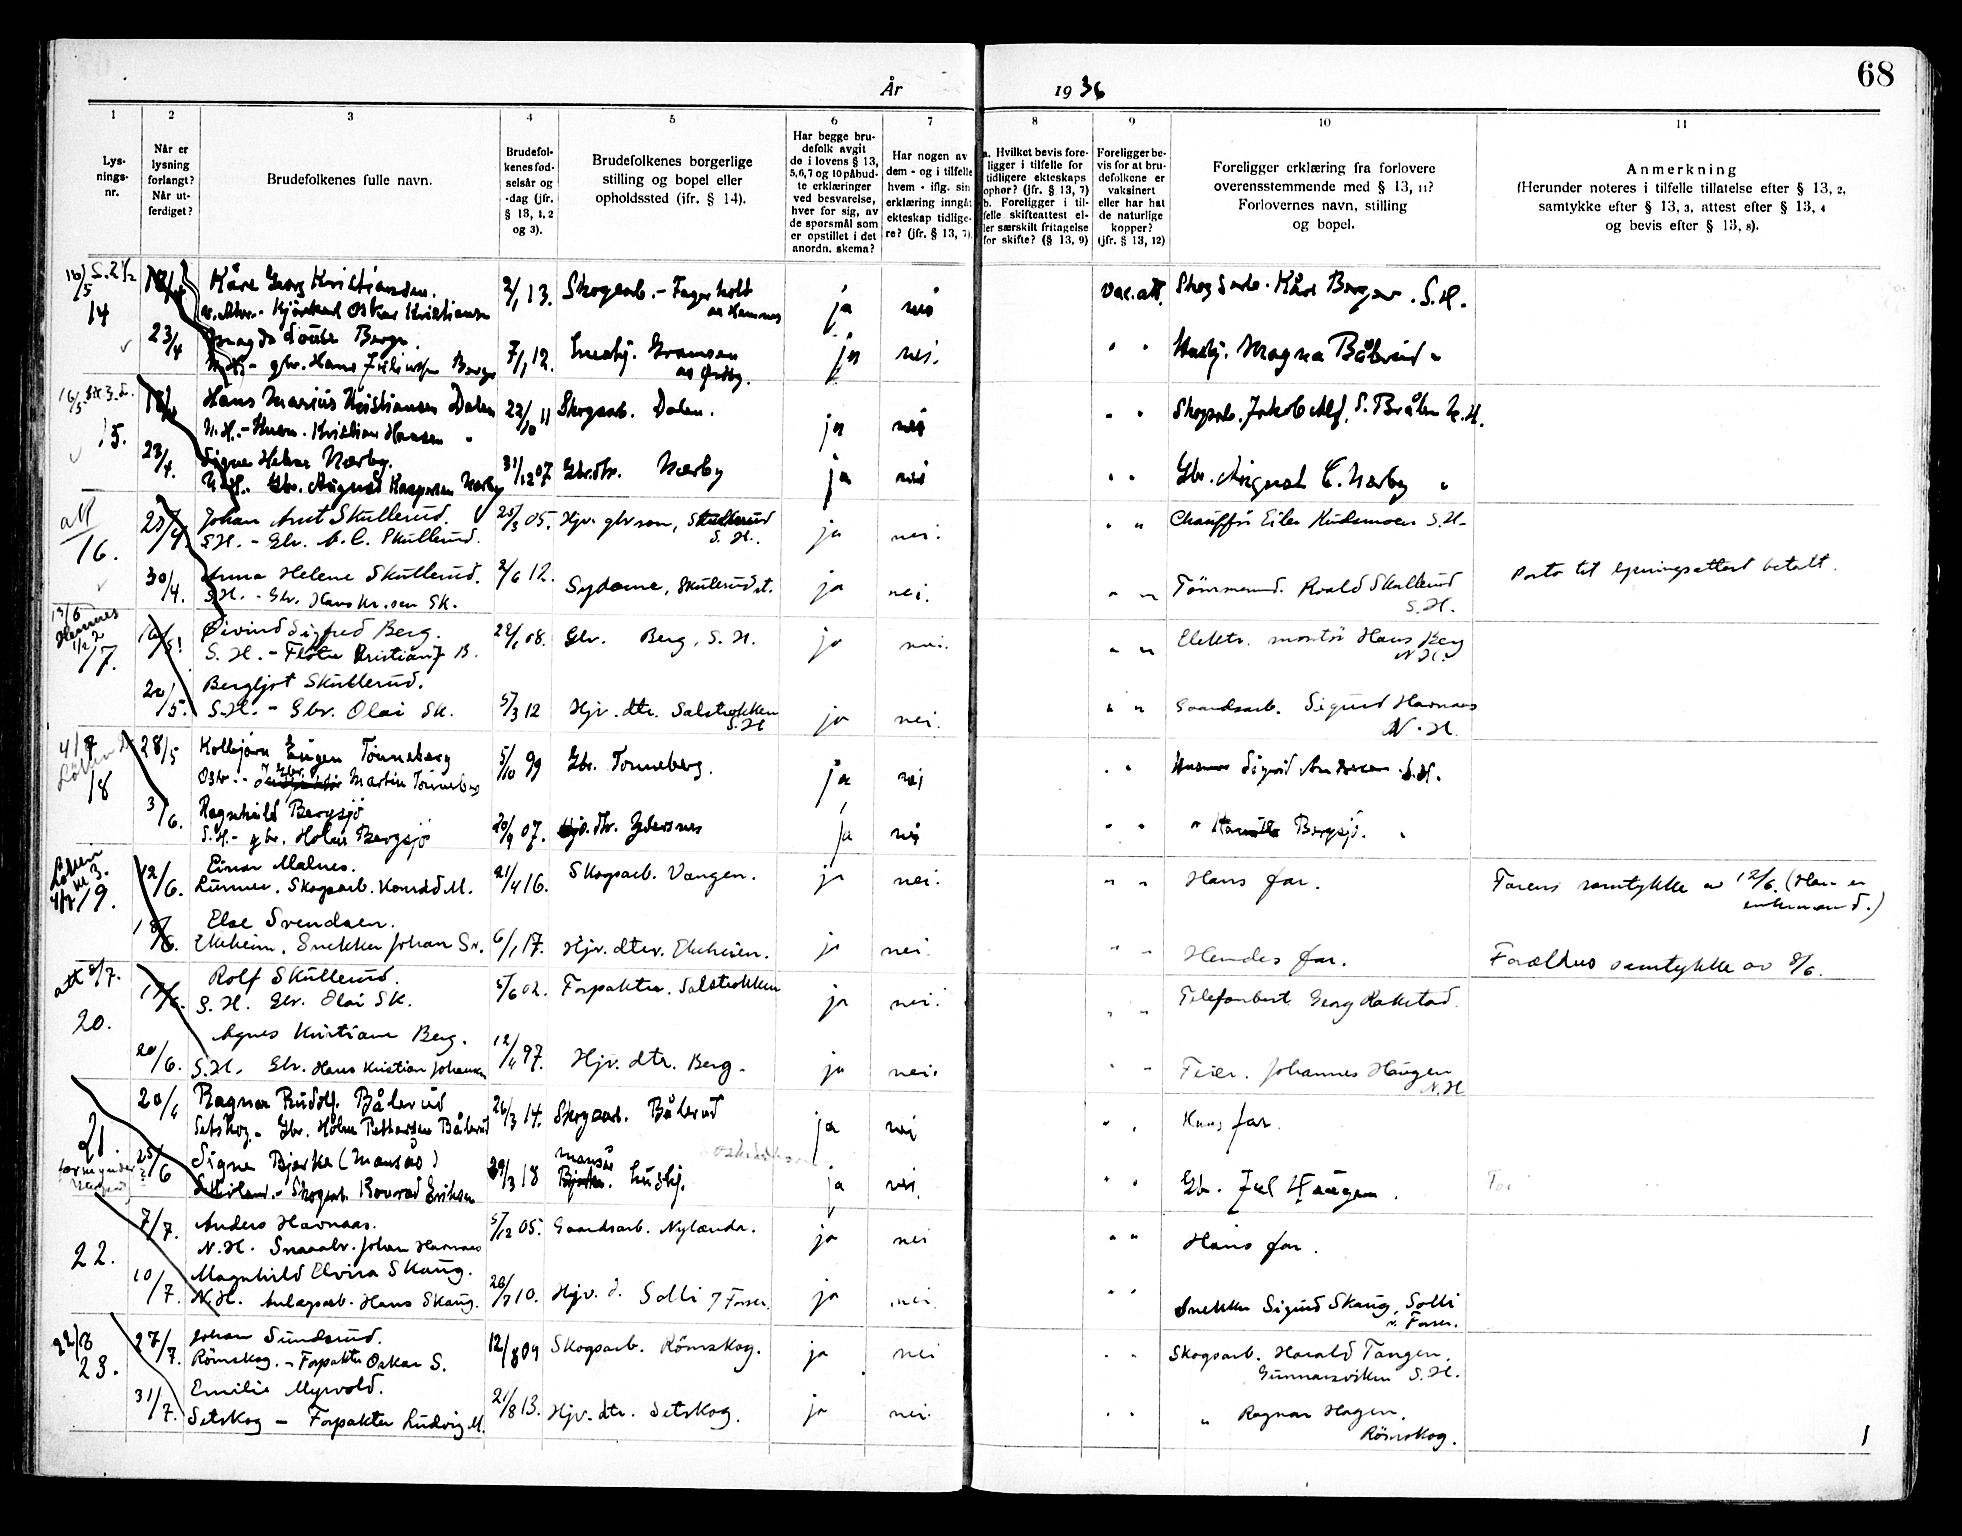 68
År 1936
1 2 3 4 5 6 7 8 9 10 11
Lys-
nings-
nr.
Når er
lysning
forlangt?
Når ut-
ferdiget?
Brudefolkenes fulle navn.
Brudefol-
kenes fød-
selsår og
-dag (jfr.
§ 13, 1, 2
og 3).
Brudefolkenes borgerlige
stilling og bopel eller
opholdssted (jfr. § 14).
Har begge bru-
defolk avgit
de i lovens § 13,
5,6,7 og 10 påbud-
te erklæringer
ved besvarelse,
hver for sig, av
de spørsmål som
er opstillet i det
anordn. skema?
Har nogen av
dem - og i tilfelle
hvem - iflg. sin
erklæring inngåt
ekteskap tidlige-
re? (jfr. § 13, 7).
a. Hvilket bevis fore-
ligger i tilfelle for
tidligere ekteskaps
ophør? (jfr. § 13, 7)
b. Foreligger i til-
felle skifteattest el-
ler særskilt fritagelse
for skifte? (§ 13, 9)
Foreligger be-
vis for at bru-
defolkene er
vaksinert
eller har hat
de naturlige
kopper?
(jfr. § 13, 12)
Foreligger erklæring fra forlovere
overensstemmende med § 13, 11?
Forlovernes navn, stilling
og bopel.
Anmerkning
(Herunder noteres i tilfelle tillatelse efter § 13, 2,
samtykke efter § 13, 3, attest efter § 13, 4
og bevis efter § 13, 8).
14 Kåre Georg Kristiansen. 2/1 13. Skogsarb. - Fagerholt ja nei vac. att. Kåre Berger. S.H.
Kristiansen
23/4 Magda Louise Berge. 7/1 12. ja nei. " " Magna Bålerud "
15. Hans Marius Kristiansen Dalen 22/10 11 Skogsarb. Dalen. ja nei " " Skogsarb. Jakob Alf. S. Bråten N.H.
N.H. - Kristian Hansen
23/4. Signe Helene Nærby. 31/12 07 Gbr.dtr. Nærby ja nei " " Gbr. August C. Nærby "
N.H. Gbr. August Kaspersen Nærby
att
16. 23/4 Johan Arnt Skullerud. 25/3 05. Hjv. gbr søn, Skullerud ja nei. " " Chauffør Eiler Kudsmoen S.H.
S.H. - Gbr. A. C. Skullerud. S.H.
30/4. Anna Helene Skullerud. 2/6 12. Sydame, Skullerud st. ja nei. " " Tømmermd. Roald Skullerud
S.H. - Gbr. Hans Kr.sen Sk. S.H.
Porto til lysningsattest betalt.
Hemnes
17. Øivind Sigfred Berg. 22/1 08. Gbr. Berg, S.H. ja nei. " " Elektr. montør Hans Berg
S.H. - Fløter Kristian J. B. N.H.
20/5. Bergljot Skullerud. 5/3 12 Hjv. dtr. Salstrokken ja nei. " " Gaardsarb. Sigurd Havnaas
S.H. - Gbr. Olai Sk. S.H N.H.
18 28/5 Kolbjørn Eugen Tønneberg 5/10 99 Gbr. Tonneberg. ja nei " " Sigvid Andersen S.H.
Martin Tønneberg
3/6. Ragnhild Bergsjø 20/9 07. Hjv. dtr. ja nei " " " Bergsjø. "
S.H. - gbr. Holm Bergsjø
19. 12/6. Einar Malnes. 21/4 16. Skogsarb. Vangen. ja nei. " " Hans far. Farens samtykke av 12/6. (Han er
Lunner, Skogsarb. Konrad M. enkemand.)
18/6. Else Svendsen. 6/1 17. Hjv. dter. Ekeheien. ja nei. " " Hendes far. Forældres samtykke av 8/6.
Ekeheim, Snekker Johan Sv.
att 8/7.
20. Rolf Skullerud. 5/6 02. Forpakter, Salstrokken ja nei. " " Telefonbest. Georg Rakstad.
S.H. Gbr. Olai Sk.
20/6. Agnes Kristiane Berg. 12/4 97. Hjv. dtr. Berg. ja nei. " " Feier. Johannes Haugen
S.H. Gbr. Hans Kristian Johansen N.H
21. 20/6 Ragnar Rudolf Bålerud 26/3 14. Skogsarb. Bålerud ja nei " " Hans far.
Setskog - Gbr. Holm Pettersen Bålerud
25/6 Signe Bjerke (Mansås) 29/3 18 Mansås ja nei. " " Gb. Juel Haugen.
Skogsarb. Konrad Eriksen
22. 7/7. Anders Havnaas. 5/12 05. Gaardsarb. Nylænde. ja nei " " Hans far.
N.H. Johan Havnaas
10/7. Magnhild Elvira Skaug. 20/7 10. Hjv. d. Solli ja nei. " " Snekker Sigurd Skaug, Solli
N.H. Anlægsarb. Hans Skaug.
23. 27/7. Johan Sundsrud. 12/8 09 Skogsarb. Rømskog. ja nei " " Skogsarb. Harald Tangen,
Rømskog. - Forpakter Oskar S. Gunnarsviken S.H.
31/7. Emilie Myrvold. 21/8 13. Hjv. dtr. Setskog. ja nei. " " " Ragnar Hagen,
Setskog - Forpakter Ludvig M. Rømskog.